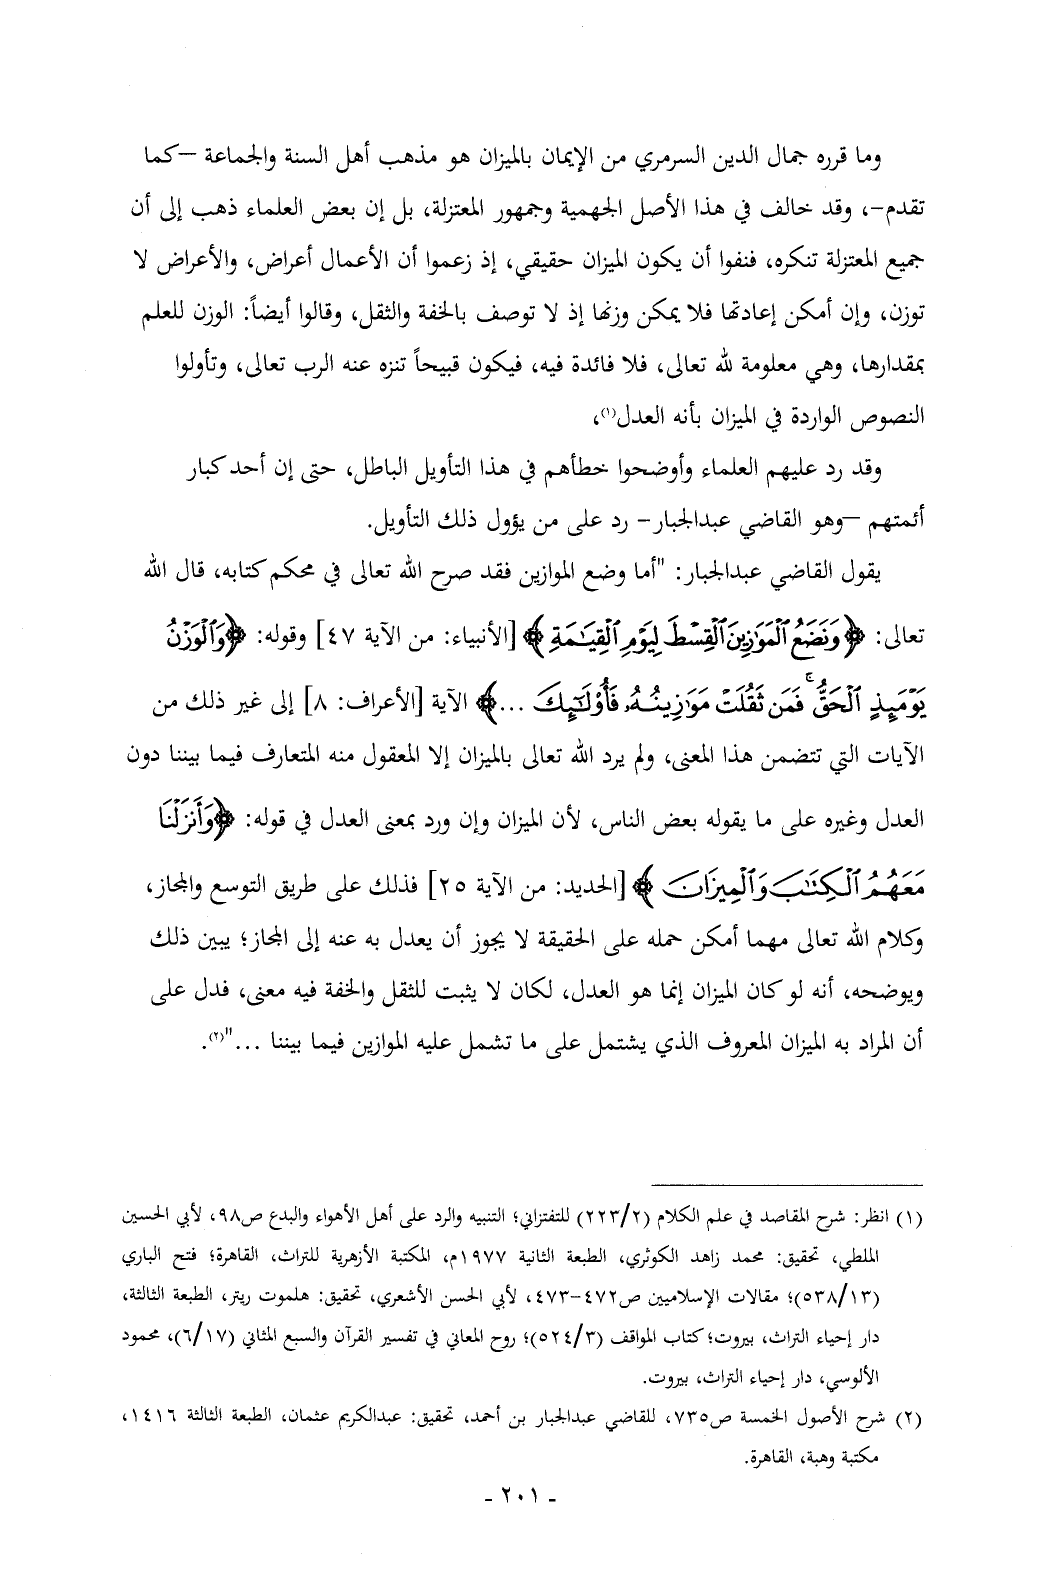 وما قرره جمال الدين السرمري من الإيمان بالميزان هو مذهب أهل السنة والجماعة –كما
تقدم–، وقد خالف في هذا الأصل الجهمية وجمهور المعتزلة، بل إن بعض العلماء ذهب إلى أن
جميع المعتزلة تنكره، فنفوا أن يكون الميزان حقيقي، إذ زعموا أن الأعمال أعراض، والأعراض لا
توزن، وإن أمكن إعادتها فلا يمكن وزنها إذ لا توصف بالخفة والثقل، وقالوا أيضاً: الوزن للعلم
بمقدارها، وهي معلومة لله تعالى، فلا فائدة فيه، فيكون قبيحاً تنزه عنه الرب تعالى، وتأولوا
النصوص الواردة في الميزان بأنه العدل(١)،
وقد رد عليهم العلماء وأوضحوا خطأهم في هذا التأويل الباطل، حتى إن أحد كبار
أئمتهم –وهو القاضي عبدالجبار– رد على من يؤول ذلك التأويل.
يقول القاضي عبدالجبار: "أما وضع الموازين فقد صرح الله تعالى في محكم كتابه، قال الله
تعالى: ﴿وَنَضَعُ ٱلْمَوَٰزِينَ ٱلْقِسْطَ لِيَوْمِ ٱلْقِيَٰمَةِ﴾ [الأنبياء: من الآية ٤٧] وقوله: ﴿وَٱلْوَزْنُ
يَوْمَئِذٍ ٱلْحَقُّ ۚ فَمَن ثَقُلَتْ مَوَٰزِينُهُۥ فَأُو۟لَٰٓئِكَ ...﴾ الآية [الأعراف: ٨] إلى غير ذلك من
الآيات التي تتضمن هذا المعنى، ولم يرد الله تعالى بالميزان إلا المعقول منه المتعارف فيما بيننا دون
العدل وغيره على ما يقوله بعض الناس، لأن الميزان وإن ورد بمعنى العدل في قوله: ﴿وَأَنزَلْنَا
مَعَهُمُ ٱلْكِتَٰبَ وَٱلْمِيزَانَ﴾ [الحديد: من الآية ٢٥] فذلك على طريق التوسع والمجاز،
وكلام الله تعالى مهما أمكن حمله على الحقيقة لا يجوز أن يعدل به عنه إلى المجاز؛ يبين ذلك
ويوضحه، أنه لو كان الميزان إنما هو العدل، لكان لا يثبت للثقل والخفة فيه معنى، فدل على
أن المراد به الميزان المعروف الذي يشتمل على ما تشمل عليه الموازين فيما بيننا ..."(٢).
(١) انظر: شرح المقاصد في علم الكلام (٢٢٣/٢) للتفتزاني؛ التنبيه والرد على أهل الأهواء والبدع ص٩٨، لأبي الحسين
الملطي، تحقيق: محمد زاهد الكوثري، الطبعة الثانية ١٩٧٧م، المكتبة الأزهرية للتراث، القاهرة؛ فتح الباري
(٥٣٨/١٣)؛ مقالات الإسلاميين ص٤٧٢–٤٧٣، لأبي الحسن الأشعري، تحقيق: هلموت ريتر، الطبعة الثالثة،
دار إحياء التراث، بيروت؛ كتاب المواقف (٥٢٤/٣)؛ روح المعاني في تفسير القرآن والسبع المثاني (٦/١٧)، محمود
الألوسي، دار إحياء التراث، بيروت.
(٢) شرح الأصول الخمسة ص٧٣٥، للقاضي عبدالجبار بن أحمد، تحقيق: عبدالكريم عثمان، الطبعة الثالثة ١٤١٦،
مكتبة وهبة، القاهرة.
- ٢٠١ -